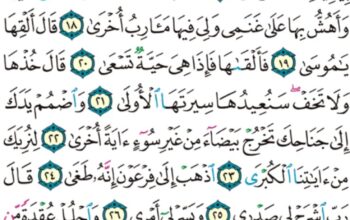 وَأَهُشُّ بِهَا عَلَىٰ غَنَمِى وَلِىَ فِيهَا مَـَٔارِبُ أُخْرَىٰ ١٨ قَالَ أَلْقِهَا
يَٰمُوسَىٰ ١٩ فَأَلْقَىٰهَا فَإِذَا هِىَ حَيَّةٌ تَسْعَىٰ ٢٠ قَالَ خُذْهَا
وَلَا تَخَفْ سَنُعِيدُهَا سِيرَتَهَا ٱلْأُولَىٰ ٢١ وَٱضْمُمْ يَدَكَ
إِلَىٰ جَنَاحِكَ تَخْرُجْ بَيْضَآءَ مِنْ غَيْرِ سُوٓءٍ ءَايَةً أُخْرَىٰ ٢٢ لِنُرِيَكَ
مِنْ ءَايَٰتِنَا ٱلْكُبْرَى ٢٣ ٱذْهَبْ إِلَىٰ فِرْعَوْنَ إِنَّهُۥ طَغَىٰ ٢٤ قَالَ
رَبِّ ٱشْرَحْ لِى صَدْرِى ٢٥ وَيَسِّرْ لِىٓ أَمْرِى ٢٦ وَٱحْلُلْ عُقْدَةً مِّن